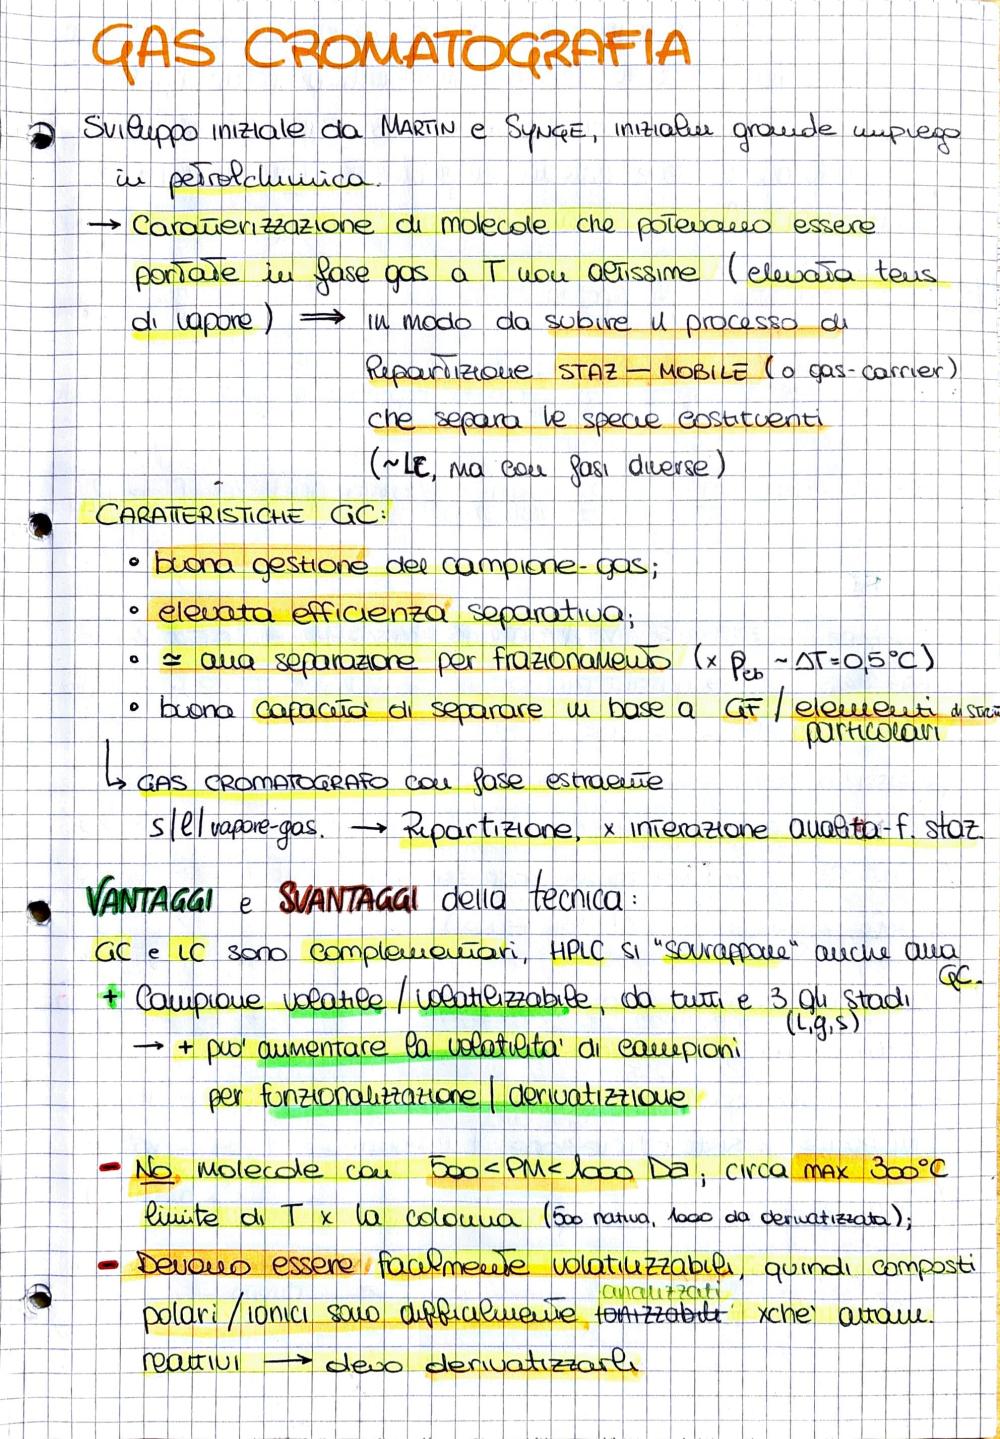 GAS CROMATOGRAFIA
Sviluppo iniziale da MARTIN e SYNGE, inizialm grande impiego
in petrolchimica.
→ Caratterizzazione di molecole che potevano essere
portate in fase gas a T non altissime (elevata tens
di vapore) ⟹ in modo da subire il processo di
Ripartizione STAZ — MOBILE (o gas-carrier)
che separa le specie costituenti
(~LC, ma con fasi diverse)
CARATTERISTICHE GC:
• buona gestione del campione-gas;
• elevata efficienza separativa;
• ≃ alla separazione per frazionamento (x Peb ~ ΔT=0,5°C)
• buona capacità di separare in base a GF / elementi di strutt
particolari
↳ GAS CROMATOGRAFO con fase estraente
s/l/vapore-gas. → Ripartizione, x interazione analita-f. staz
VANTAGGI e SVANTAGGI della tecnica:
GC e LC sono complementari, HPLC si "sovrappone" anche alla
GC.
+ Campione volatile / volatilizzabile, da tutti e 3 gli stadi
(L,g,s)
→ + puo' aumentare la volatilita' di campioni
per funzionalizzazione / derivatizzione
- No molecole con 500 < PM < 1000 Da; circa max 300°C
limite di T x la colonna (500 nativa, 1000 da derivatizzata);
- Devono essere facilmente volatilizzabili, quindi composti
analizzati
polari / ionici sono difficilmente ionizzabili xche' altam.
reattivi → devo derivatizzarli